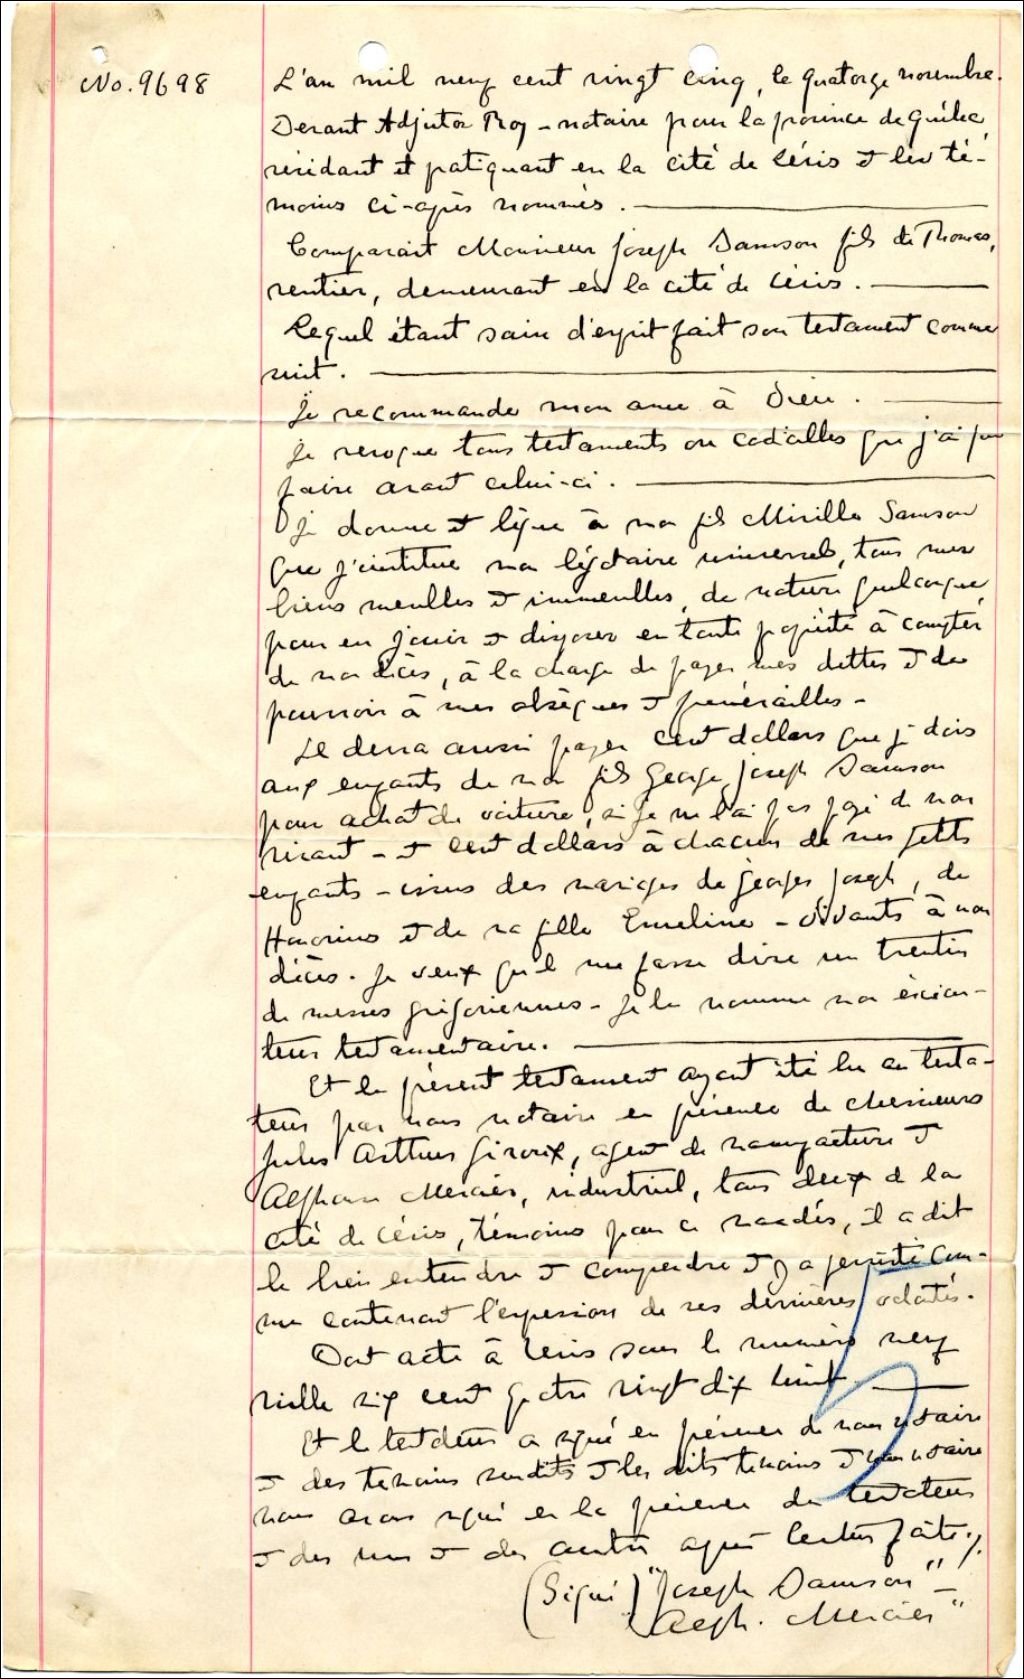 No. 9698
L'an mil neuf cent vingt cinq, le quatorze novembre.
Devant Adjutor Roy - notaire pour la province de Québec,
résidant et patiquant en la cité de Lévis et les té-
moins ci-après nommés.
Comparait Monsieur Joseph Samson fils de Thomas,
rentier, demeurant en la cité de Lévis.
Lequel étant sain d'esprit fait son testament comme
suit.
Je recommande mon ame à Dieu.
Je revoque tous testaments ou codicilles que j'ai pu
faire avant celui-ci.
Je donne et lègue à mon fils Mirilla Samson
que j'institue mon légataire universel, tous mes
biens meubles et immeubles, de nature quelconque,
pour en jouir et disposer en toute propriété à compter
de mon décès, à la charge de payer mes dettes et de
pourvoir à mes obsèques et funérailles -
Il devra aussi payer cent dollars que je dois
aux enfants de mon fils George Joseph Samson
pour achat de voiture, si je ne l'ai pas payé de mon
vivant - et cent dollars à chacun de mes petits
enfants - issus des mariages de Georges Joseph, de
Honorius et de ma fille Emeline - vivants à mon
décès. Je veux qu'il me fasse dire un trentin
de messes grégoriennes - Je le nomme mon exécu-
teur testamentaire.
Et le présent testament ayant été lu au testa-
teur par nous notaire en présence de Messieurs
Jules Arthur Giroux, agent de manufacture et
Alphonse Mercier, industriel, tous deux de la
cité de Lévis, témoins pour ce mandés, il a dit
le bien entendre et comprendre et y a persisté com-
me contenant l'expression de ses dernières volontés.
Dont acte à Lévis sous le numéro neuf
mille six cent quatre vingt dix huit.
Et le testateur a signé en présence de nous notaire
et des témoins susdits et les dits témoins et nous notaire
nous avons signé en la présence du testateur
et des uns et des autres après lecture faite.
(Signé) "Joseph Samson" -
"Alph. Mercier"